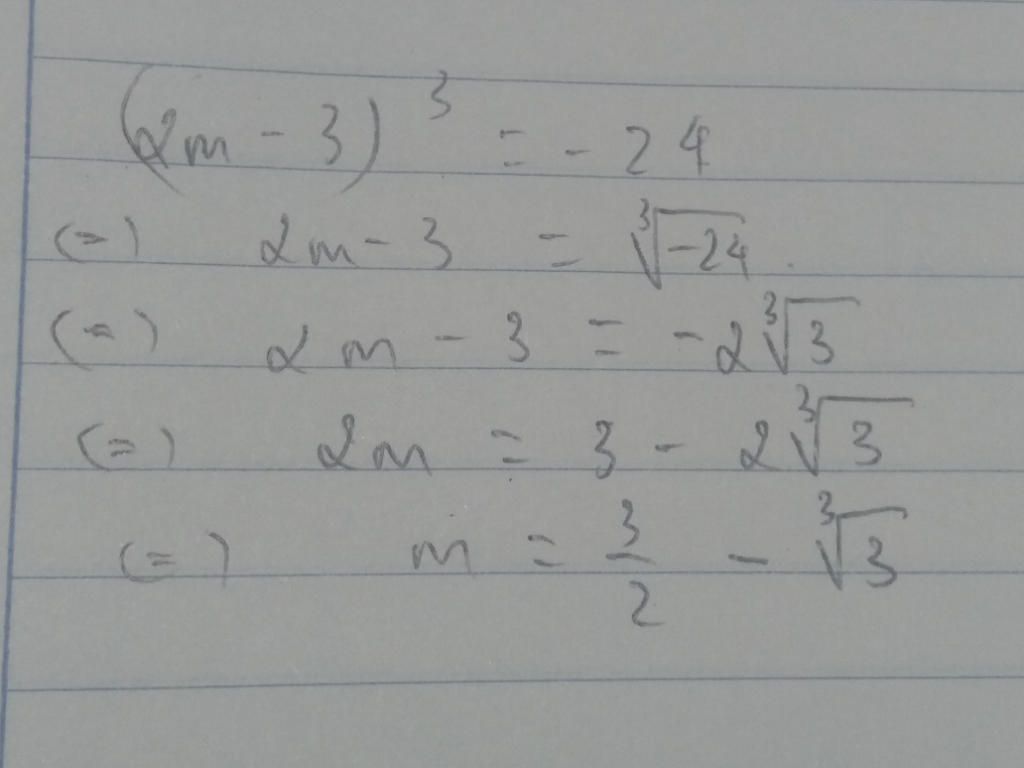 (2m - 3)³ = - 24
(=) 2m - 3 = ∛-24.
(=) 2m - 3 = - 2∛3
(=) 2m = 3 - 2∛3
(=) m = 3/2 - ∛3